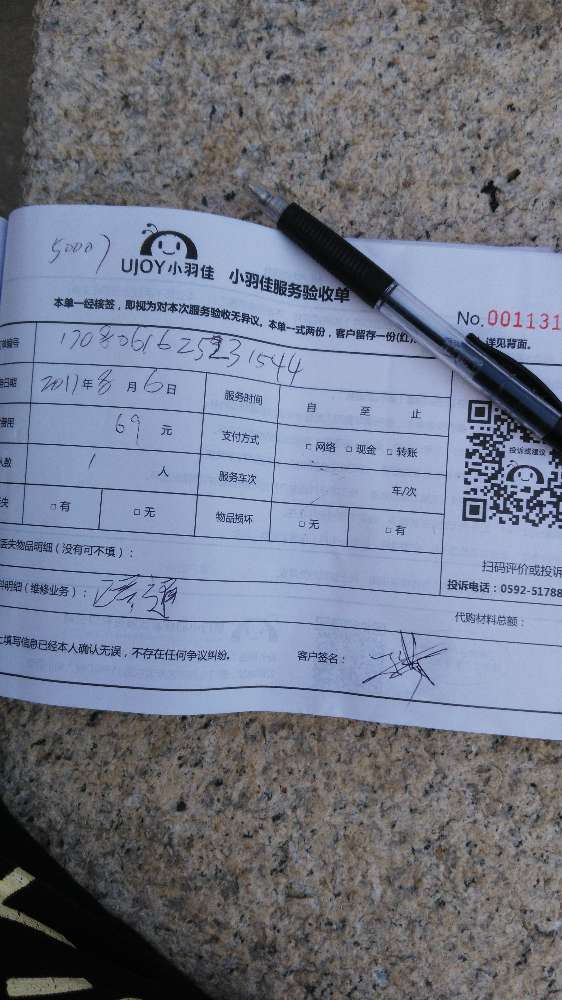 50007
UJOY小羽佳 小羽佳服务验收单
本单一经核签，即视为对本次服务验收无异议。本单一式两份，客户留存一份(红)
详见背面。
No.001131
编号
日期 2017年8月6日 服务时间 自 至 止
费用 69 元 支付方式 □网络 □现金 □转账
人数 1 人 服务车次 车/次
失 □有 □无 物品损坏 □无 □有
投诉或建议
扫码评价或投诉
投诉电话：0592-51788
丢失物品明细（没有可不填）：
料明细（维修业务）：
代购材料总额：
上填写信息已经本人确认无误，不存在任何争议纠纷。 客户签名：